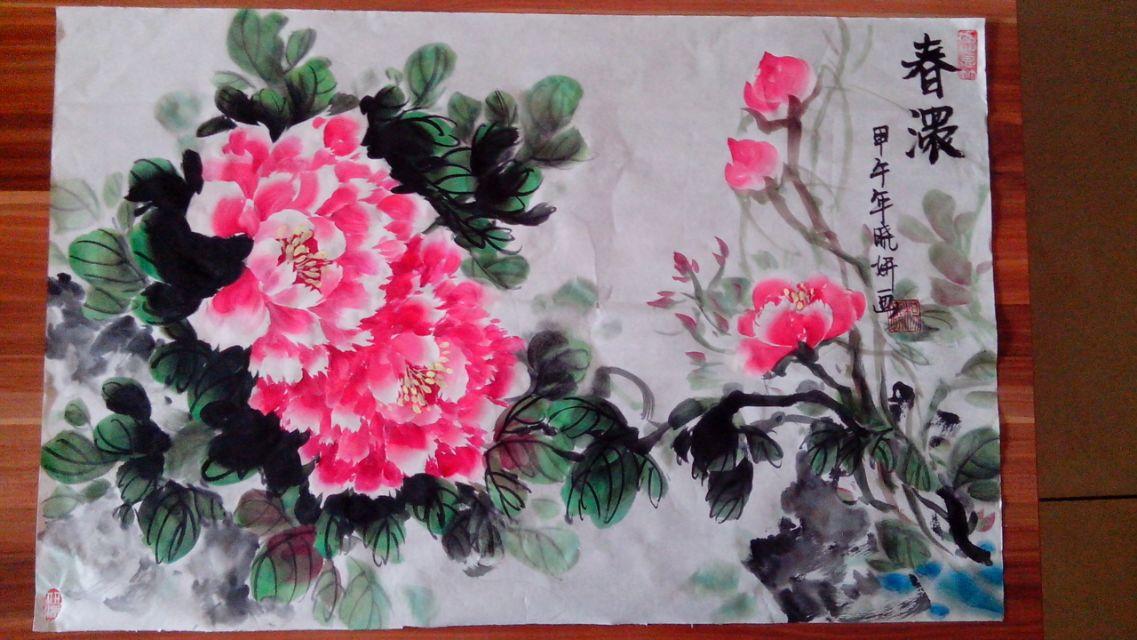 春濃
甲午年晓妍画